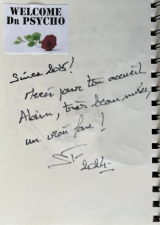 WELCOME
DR PSYCHO
Since 2015!
Merci pour ton accueil
Alain, très beau musée,
un vrai fare !